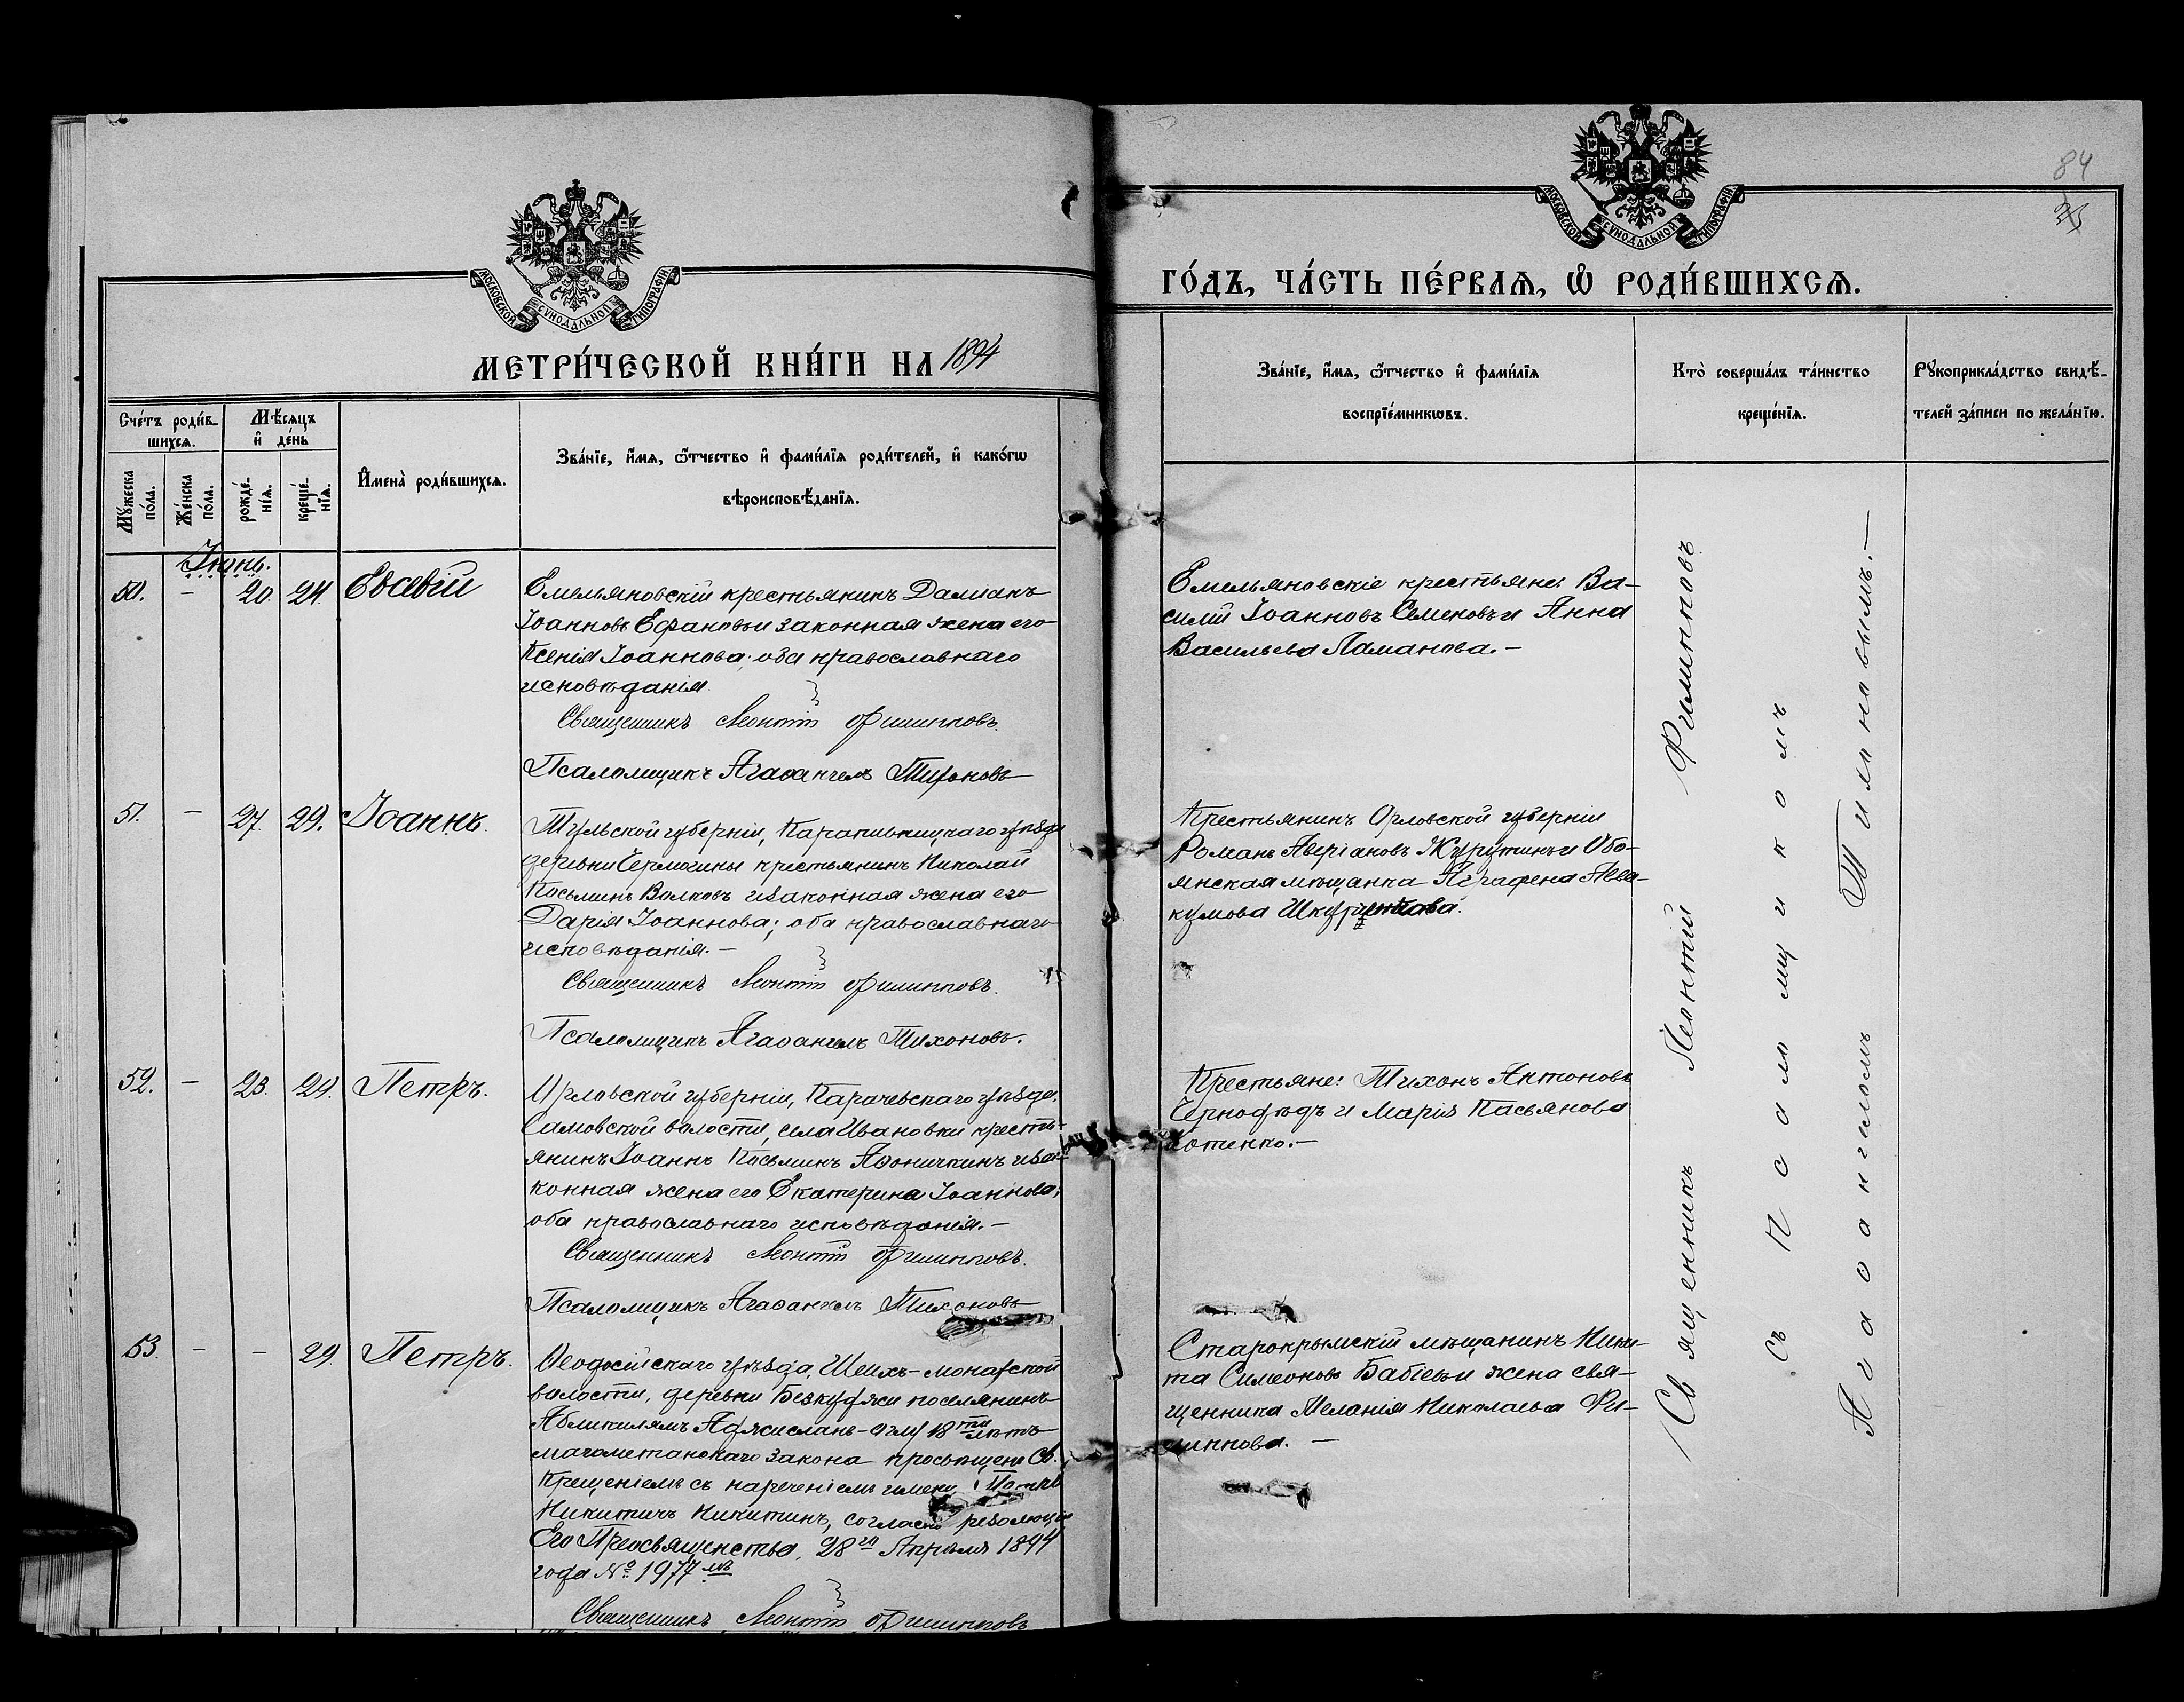 МОСКОВСКОЙ СѴНОДАЛЬНОЙ ТИПОГРАФІИ
МЕТРИ́ЧЕСКОЙ КНИ́ГИ НА 1894
Сче́тъ роди́в-
шихся.
Мѣ́сяцъ
и҆ де́нь
Мꙋ́жеска
по́ла.
Же́нска
по́ла.
рожде́-
нїѧ.
креще́-
нїѧ.
И҆мена̀ роди́вшихсѧ.
Зва́нїе, и҆́мѧ, ѻ҆́тчество и҆ фами́лїѧ роди́телей, и҆ како́гѡ
вѣроисповѣ́данїѧ.
Іюнь.
50. – 20. 24. Евсевій
Емельяновскій крестьянинъ Даміанъ
Іоанновъ Ефановъ и законная жена его
Ксенія Іоаннова; оба православнаго
исповѣданія.
Священникъ Леонтій Филипповъ.
Псаломщикъ Агаѳангелъ Тихоновъ
51. – 27. 29. Іоаннъ.
Тульской губерніи, уѣзда
деревни крестьянинъ Николай
Косьминъ Волковъ и законная жена его
Дарія Іоаннова; оба православнаго
исповѣданія. –
Священникъ Леонтій Филипповъ.
Псаломщикъ Агаѳангелъ Тихоновъ.
52. – 23. 29. Петръ.
Орловской губерніи, Карачевскаго уѣзда,
Самовской волости, села Ивановки кресть-
янинъ Іоаннъ Косьминъ Аѳоничкинъ и за-
конная жена его Екатерина Іоаннова;
оба православнаго исповѣданія. –
Священникъ Леонтій Филипповъ.
Псаломщикъ Агаѳангелъ Тихоновъ
53. – – 29. Петръ.
Ѳеодосійскаго уѣзда, Шейхъ-Монакской
волости, деревни поселянинъ
Аджисланъ-оглу 18ти лѣтъ
магометанскаго закона просвѣщенъ Св.
Крещеніемъ съ нареченіемъ имени Петръ
Никитичъ Никитинъ, согласно резолюціи
Его Преосвященства, 28го Апрѣля 1894
года № 1977мъ
Священникъ Леонтій Филипповъ
84
МОСКОВСКОЙ СѴНОДАЛЬНОЙ ТИПОГРАФІИ
ГО́ДЪ, ЧА́СТЬ ПЕ́РВАѦ, Ѡ҆ РОДИ́ВШИХСѦ.
Зва́нїе, и҆́мѧ, ѻ҆́тчество и҆ фами́лїѧ
воспрїе́мникѡвъ.
Кто̀ соверша́лъ та́инство
креще́нїѧ.
Рꙋкоприкла́дство свидѣ́-
телей за́писи по жела́нїю.
Емельяновскіе крестьяне: Ва-
силій Іоанновъ Семеновъ и Анна
Васильева Ламанова. –
Крестьянинъ Орловской губерніи
Романъ Аверіановъ Журутинъ и Обо-
янская мѣщанка Аграфена Авва-
кумова
Крестьяне: Тихонъ Антоновъ
Чернодѣдъ и Марія Касьянова
Котенко. –
Старокрымскій мѣщанинъ Ники-
та Симеоновъ Бабіевъ и жена свя-
щенника Меланія Николаева Фи-
липпова. –
Священникъ Леонтій Филипповъ
съ Псаломщикомъ
Агаѳангеломъ Тихоновымъ. –